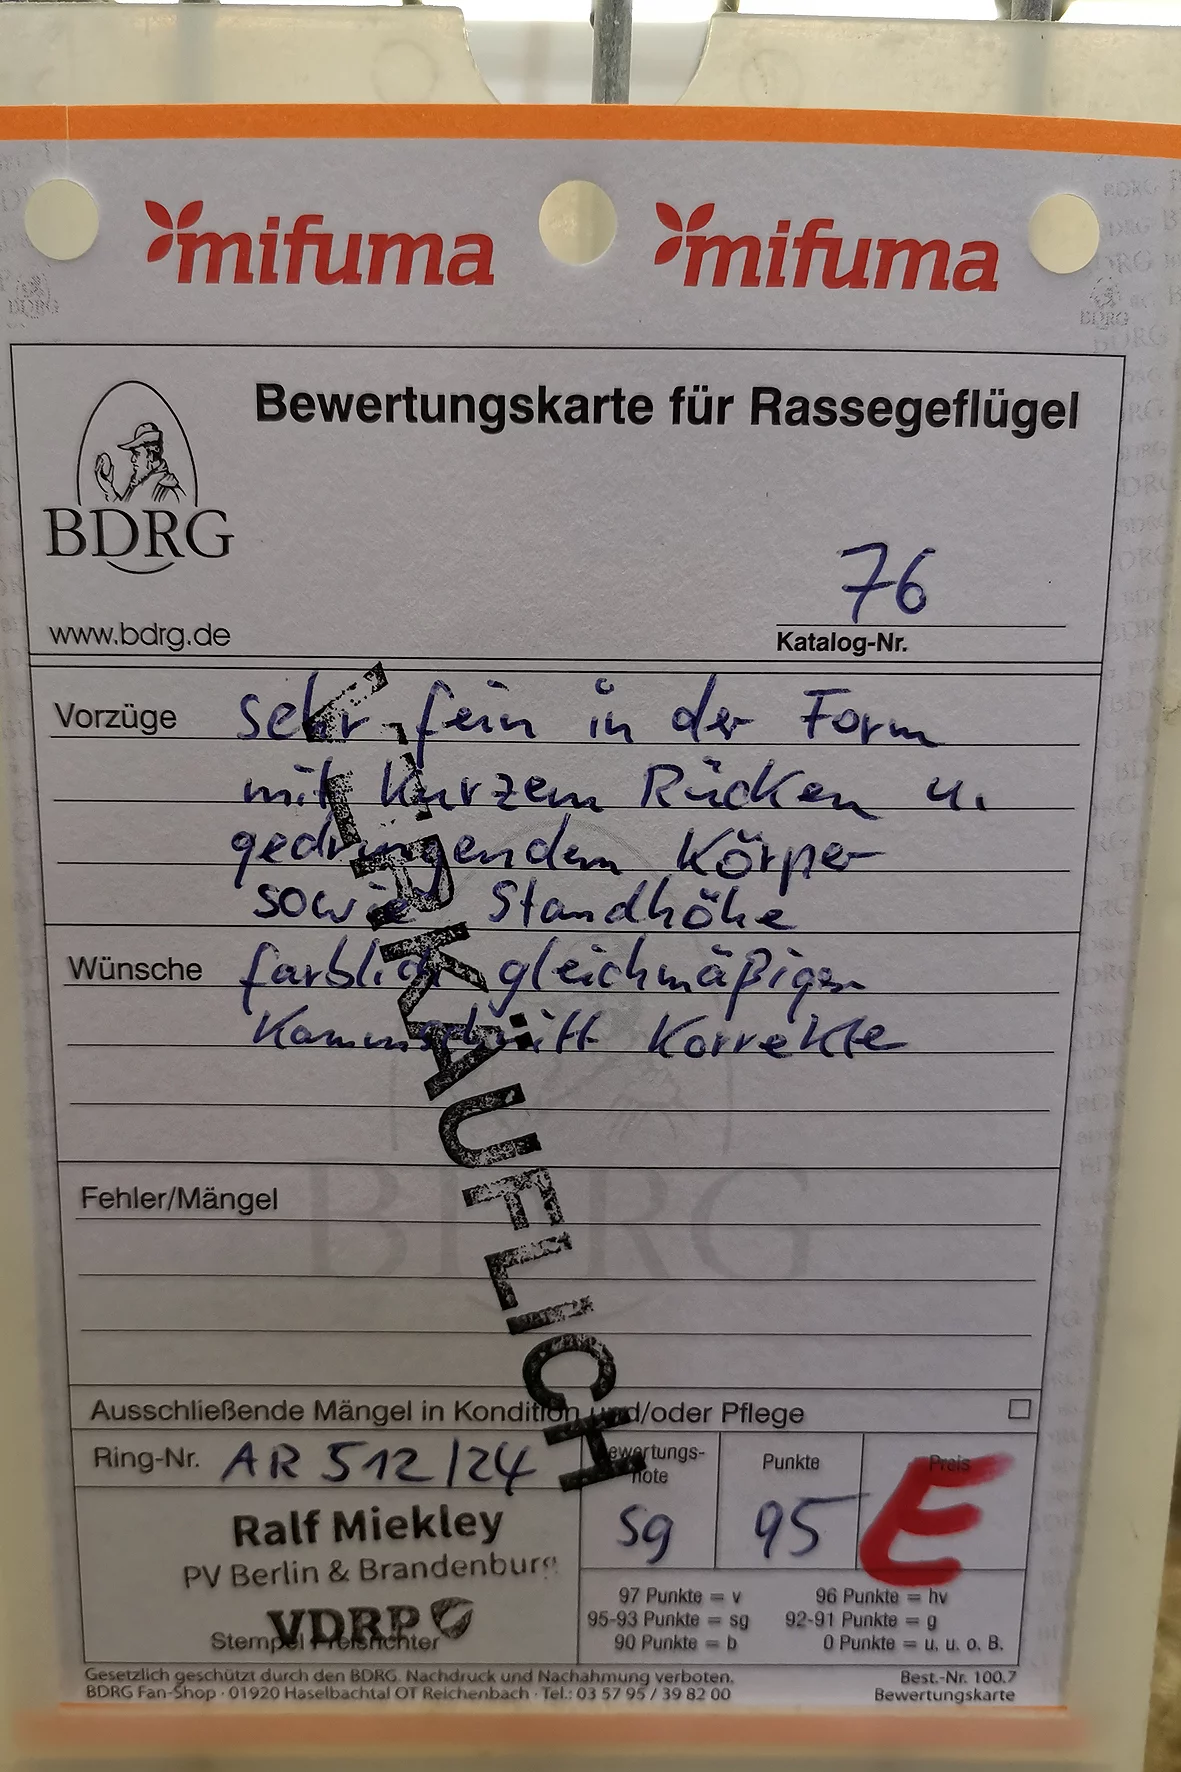 mifuma mifuma
Bewertungskarte für Rassegeflügel
BDRG
www.bdrg.de
76
Katalog-Nr.
Vorzüge sehr fein in der Form
mit kurzem Rücken u.
gedrungendem Körper
sowie Standhöhe
Wünsche farblich gleichmäßiger
Kammschnitt Korrekte
VERKÄUFLICH
BDRG
Fehler/Mängel
Ausschließende Mängel in Kondition und/oder Pflege
Ring-Nr. AR 512/24
Bewertungs-
note
sg
Punkte
95
Preis
E
Ralf Miekley
PV Berlin & Brandenburg
VDRP
Stempel Preisrichter
97 Punkte = v 96 Punkte = hv
95-93 Punkte = sg 92-91 Punkte = g
90 Punkte = b 0 Punkte = u. u. o. B.
Gesetzlich geschützt durch den BDRG. Nachdruck und Nachahmung verboten. Best.-Nr. 100.7
BDRG Fan-Shop · 01920 Haselbachtal OT Reichenbach · Tel.: 03 57 95 / 39 82 00 Bewertungskarte